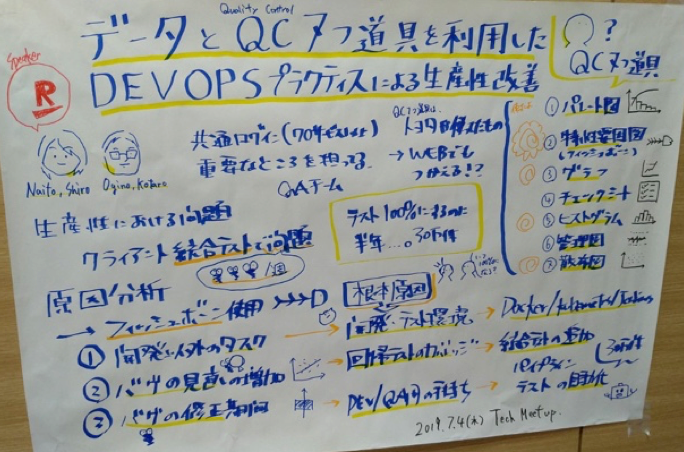 Quality Control
データとQC7つ道具を利用した
DEVOPSプラクティスによる生産性改善
Speaker
R
Naito, Shiro
Ogino, Kotaro
共通ログイン(70年
重要なところを担ってる
QAチーム
QC7つ道具は
トヨタ
→ WEBでも
つかえる!?
テスト100%にするのに
半年...。30万件
?
QC7つ道具
① パレート図
② 特性要因図
(フィッシュボーン)
③ グラフ
④ チェックシート
⑤ ヒストグラム
⑥ 管理図
⑦ 散布図
生産性における問題
クライアント結合テストで問題
/週
原因分析
→ フィッシュボーン使用
根本原因
① 開発以外のタスク
② バグの見逃しの増加
③ バグの修正期間
開発・テスト環境
回帰テストのカバレッジ
DEV/QA間の手待ち
Docker/kubernetes/Jenkins
結合テストの追加
30万件
パイプライン
テストの自動化
2019.7.4(木) Tech Meetup.